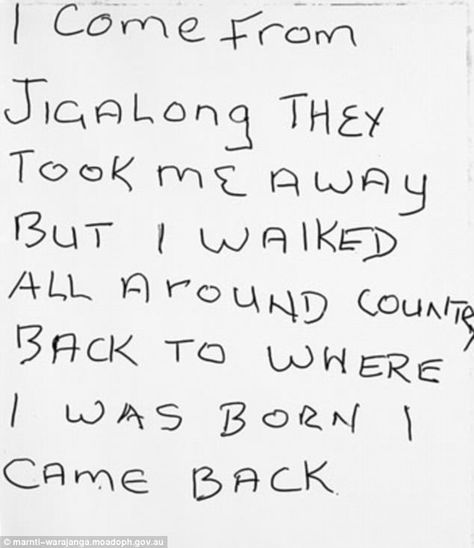 I Come From
JIGALong THEY
TOOK mE AWAY
BUT I WAlKED
ALL ArOUND COUNTRY
BACK TO WHERE
I WAS BORN I
CAmE BACK.
© marnti-warajanga.moadoph.gov.au